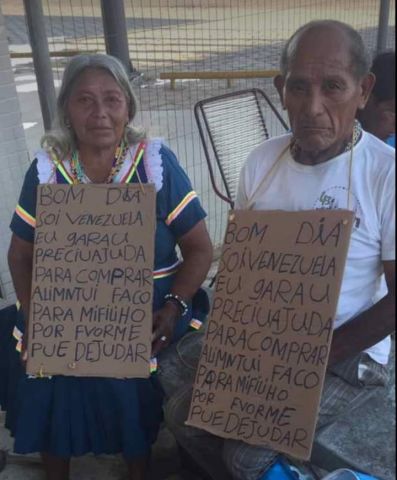 BOM DIA
SOI VENEZUELA
EU GARAU
PRECIUAJUDA
PARA COMPRAR
ALIMNTUI FACO
PARA MIFILIHO
POR FVORME
PUE DEJUDAR
BOM DIA
SOI VENEZUELA
EU GARAU
PRECIUAJUDA
PARA COMPRAR
ALIMNTUI FACO
PARA MIFILIHO
POR FVORME
PUE DEJUDAR